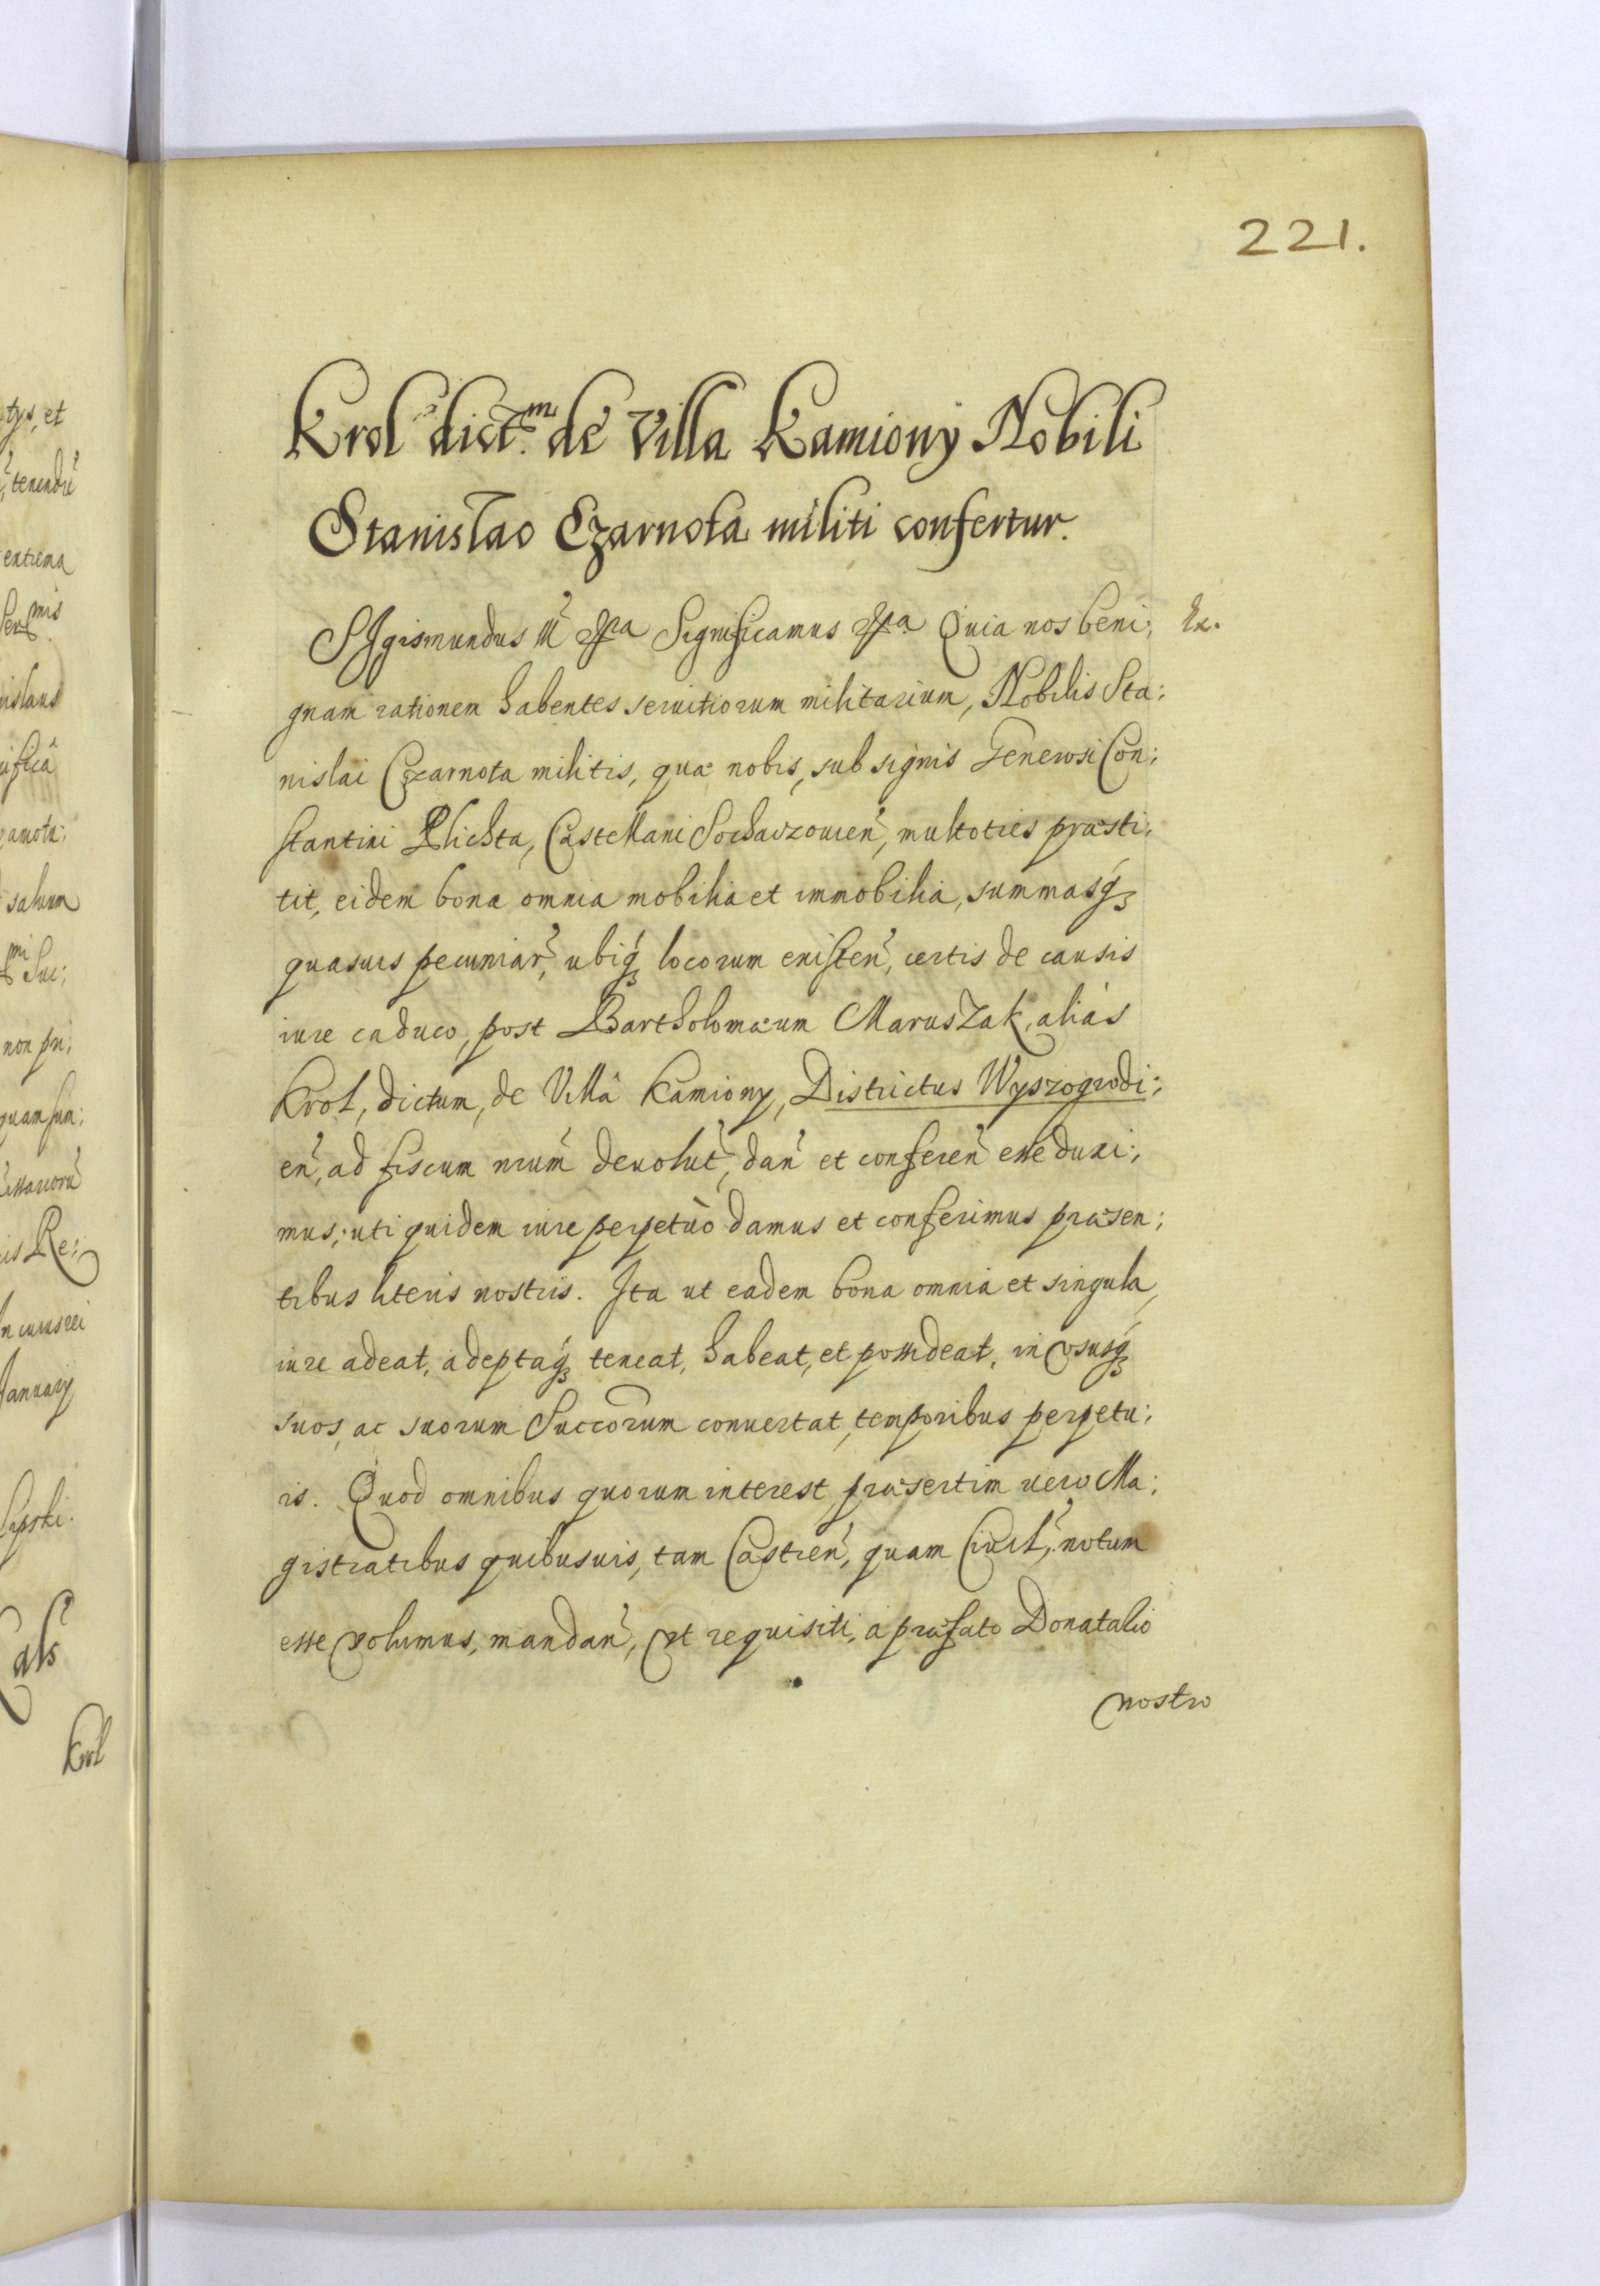 221.
Krol dict.m de Villa Kamiony Nobili
Stanislao Czarnota militi confertur.
SIgismundus III Significamus Quia nos beni;
gnam rationem habentes seruitiorum militarium, Nobilis Sta;
nislai Czarnota militis, quæ nobis, sub signis Generosi Con;
stantini Plichta, Castellani Sochaczouień, multoties præsti;
tit, eidem bona omnia mobilia et immobilia, summasq́
quasuis pecuniar̃, ubiq́ locorum existeñ, certis de causis
iure caduco, post Bartholomæum Maruszak, aliás
Krol, dictum, de Villâ Kamiony, Districtus Wyszogrodi;
eñ, ad fiscum nrum̃ deuolut̃, dañ et confereñ esse duxi;
mus; uti quidem iure perpetuò damus et conferimus præsen;
tibus literis nostris. Ita ut eadem bona omnia et singula,
iure adeat, adeptaq́ teneat, habeat, et possideat, in vsusq́
suos, ac suorum Succorum conuertat, temporibus perpetu;
is. Quod omnibus quorum interest præsertim uero Ma;
gistratibus quibusuis, tam Castreñ, quam Ciuil̃, notum
esse volumus, mandañ, vt requisiti, a præfato Donatalio
nostro